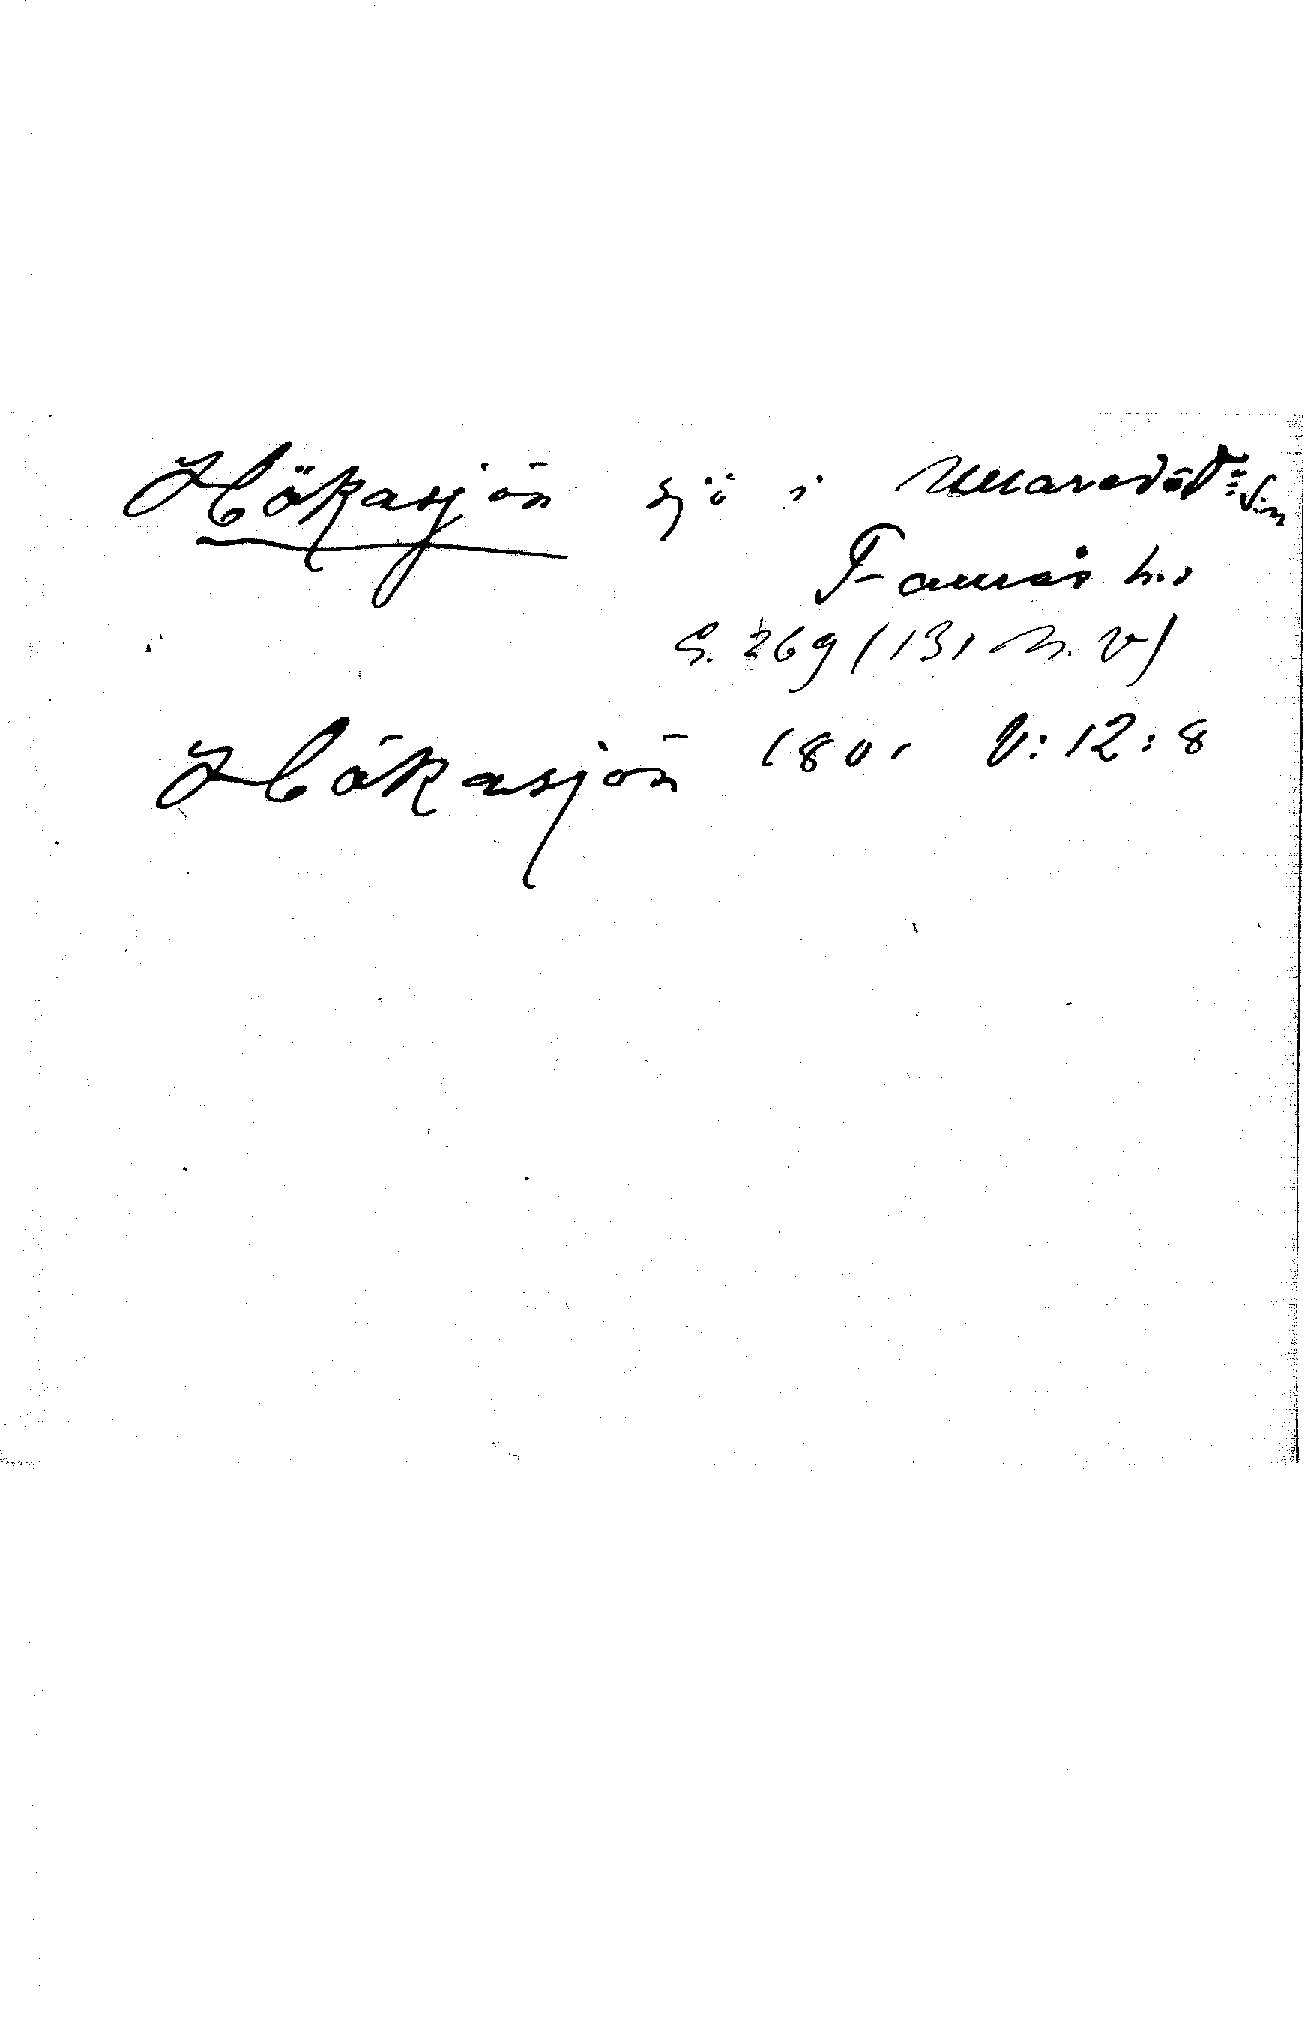 Hökasjön sjö i Ullared
Faurås h.
G. 269 (131 n. v)
Hökasjön 1801 V: 12: 8